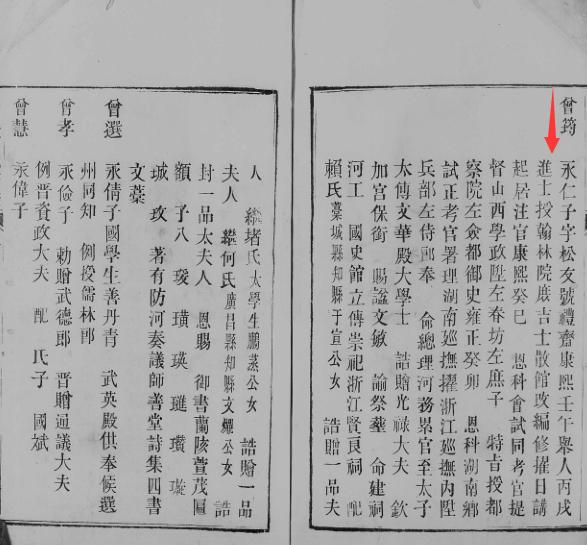 曾筠
永仁子字松友號禮齋康熙壬午舉人丙戌
進士授翰林院庶吉士散館改編修擢日講
起居注官康熙癸巳 恩科會試同考官提
督山西學政陞左春坊左庶子 特旨授都
察院左僉都御史雍正癸卯 恩科湖南鄉
試正考官署理湖南廵撫擢浙江廵撫內陞
兵部左侍郎奉 命總理河務累官至太子
太傅文華殿大學士 誥贈光祿大夫 欽
加宮保銜 賜諡文敏 諭祭塟 命建祠
河工 國史館立傳崇祀浙江賢良祠 配
賴氏藁城縣知縣于宣公女 誥贈一品夫
人 繼堵氏太學生鵬蒸公女 誥贈一品
夫人 繼何氏廣昌縣知縣文燦公女 誥
封一品太夫人 恩賜 御書蘭陔萱茂匾
額 子八 璇 璜 瑛 璡 瓚 璇
珹 玫 著有防河奏議師善堂詩集四書
文藁
曾選
永倩子國學生善丹青 武英殿供奉候選
州同知 例授儒林郎
曾孝
永儉子 勅贈武德郎 晋贈通議大夫
例晋資政大夫 配 氏子 國斌
曾慧
永偉子